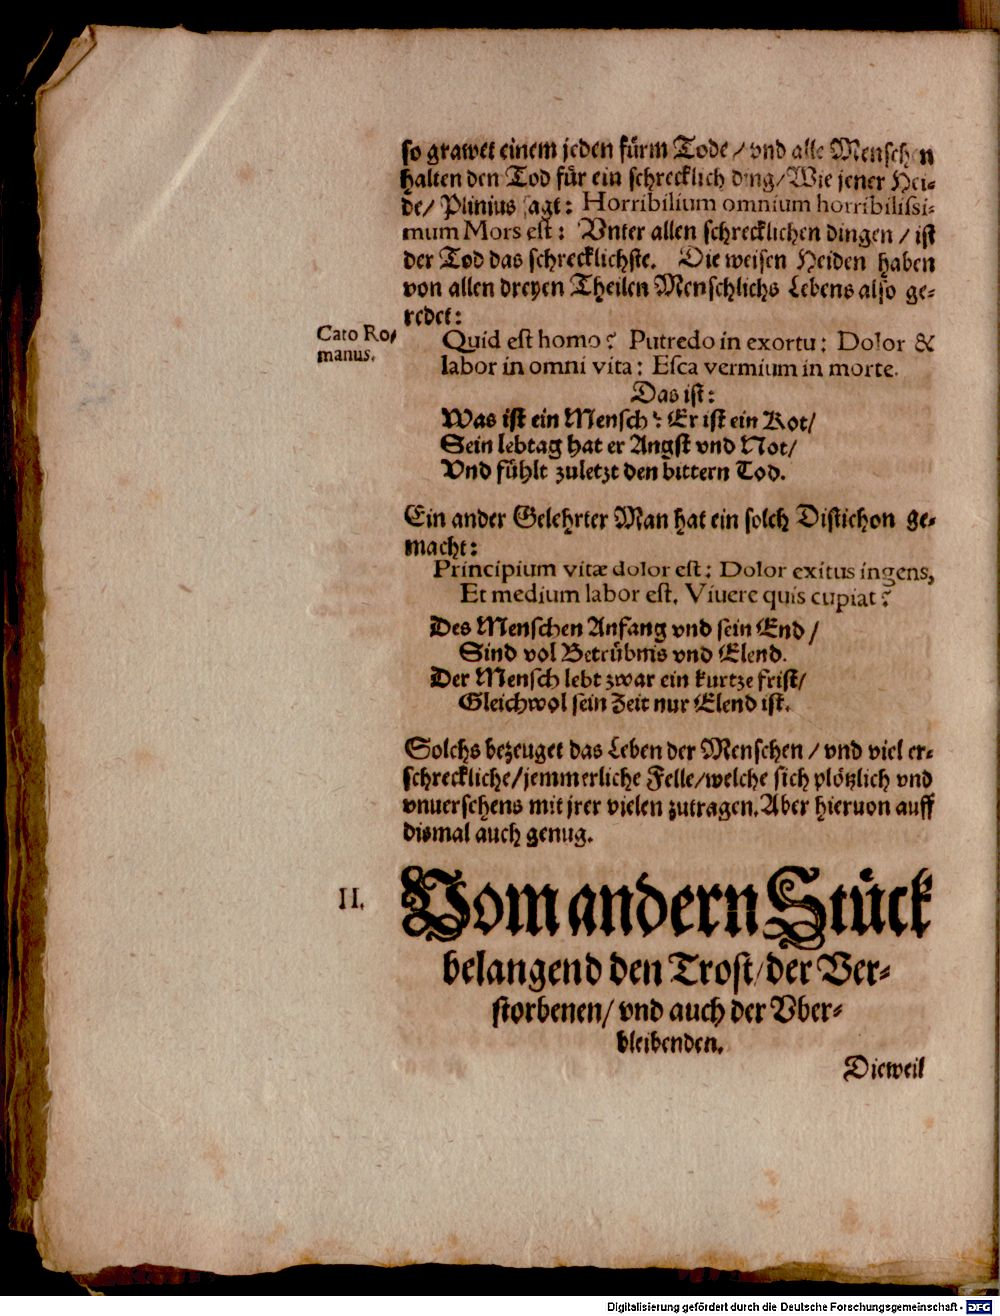 so grawet einem jeden fürm Tode / vnd alle Menschen
halten den Tod für ein schrecklich ding / Wie jener Hei-
de / Plinius sagt: Horribilium omnium horribilissi-
mum Mors est: Vnter allen schrecklichen dingen / ist
der Tod das schrecklichste. Die weisen Heiden haben
von allen dreyen Theilen Menschlichs Lebens also ge-
redet:
Cato Ro-
manus.
Quid est homo? Putredo in exortu: Dolor &
labor in omni vita: Esca vermium in morte.
Das ist:
Was ist ein Mensch? Er ist ein Kot /
Sein lebtag hat er Angst vnd Not /
Vnd fühlt zuletzt den bittern Tod.
Ein ander Gelehrter Man hat ein solch Distichon ge-
macht:
Principium vitæ dolor est: Dolor exitus ingens,
Et medium labor est. Viuere quis cupiat?
Des Menschen Anfang vnd sein End /
Sind vol Betrübnis vnd Elend.
Der Mensch lebt zwar ein kurtze frist /
Gleichwol sein Zeit nur Elend ist.
Solchs bezeuget das Leben der Menschen / vnd viel er-
schreckliche / jemmerliche Felle / welche sich plötzlich vnd
vnuersehens mit jrer vielen zutragen. Aber hieruon auff
dismal auch genug.
II.
Vom andern Stück
belangend den Trost / der Ver-
storbenen / vnd auch der Vber-
bleibenden.
Dieweil
Digitalisierung gefördert durch die Deutsche Forschungsgemeinschaft - DFG